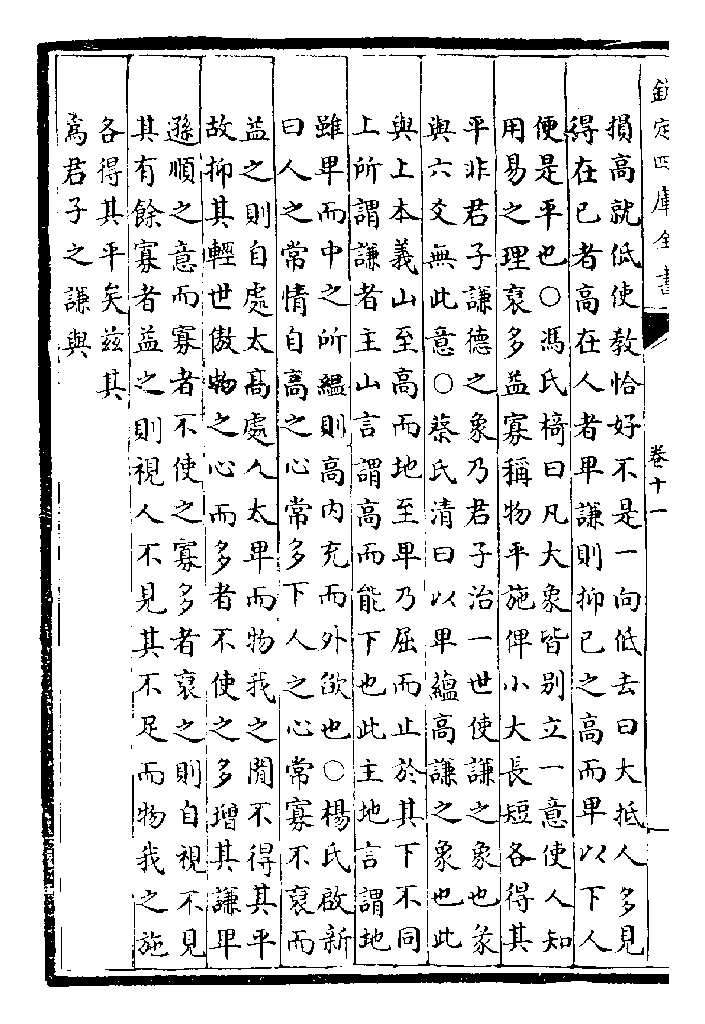 欽定四庫全書
卷十一
損高就低使教恰好不是一向低去曰大抵人多見
得在已者高在人者卑謙則抑已之高而卑以下人
便是平也○馮氏椅曰凡大象皆別立一意使人知
用易之理裒多益寡稱物平施俾小大長短各得其
平非君子謙德之象乃君子治一世使謙之象也彖
與六爻無此意○蔡氏清曰以卑蘊高謙之象也此
與上本義山至高而地至卑乃屈而止於其下不同
上所謂謙者主山言謂高而能下也此主地言謂地
雖卑而中之所緼則高內充而外欿也○楊氏啟新
曰人之常情自高之心常多下人之心常寡不裒而
益之則自處太高處人太卑而物我之閒不得其平
故抑其輕世傲物之心而多者不使之多增其謙卑
遜順之意而寡者不使之寡多者裒之則自視不見
其有餘寡者益之則視人不見其不足而物我之施
各得其平矣茲其
為君子之謙與